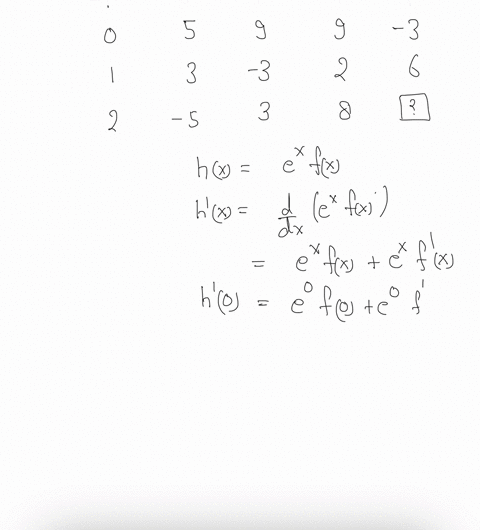 0 5 9 9 -3
1 3 -3 2 6
2 -5 3 8 ?
h(x) = e^x f(x)
h'(x) = d/dx (e^x f(x))
= e^x f(x) + e^x f'(x)
h'(0) = e^0 f(0) + e^0 f'